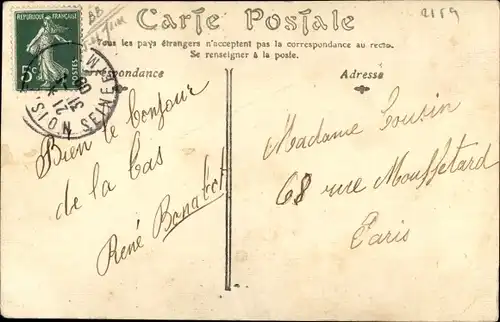 Carte Postale
Tous les pays étrangers n'acceptent pas la correspondance au recto.
Se renseigner à la poste.
Correspondance
Adresse
RÉPUBLIQUE FRANÇAISE
5c
BB
2159
SEINE
21
31
08
Bien le bonjour
de la bas
René
Madame Cousin
68 rue Mouffetard
Paris